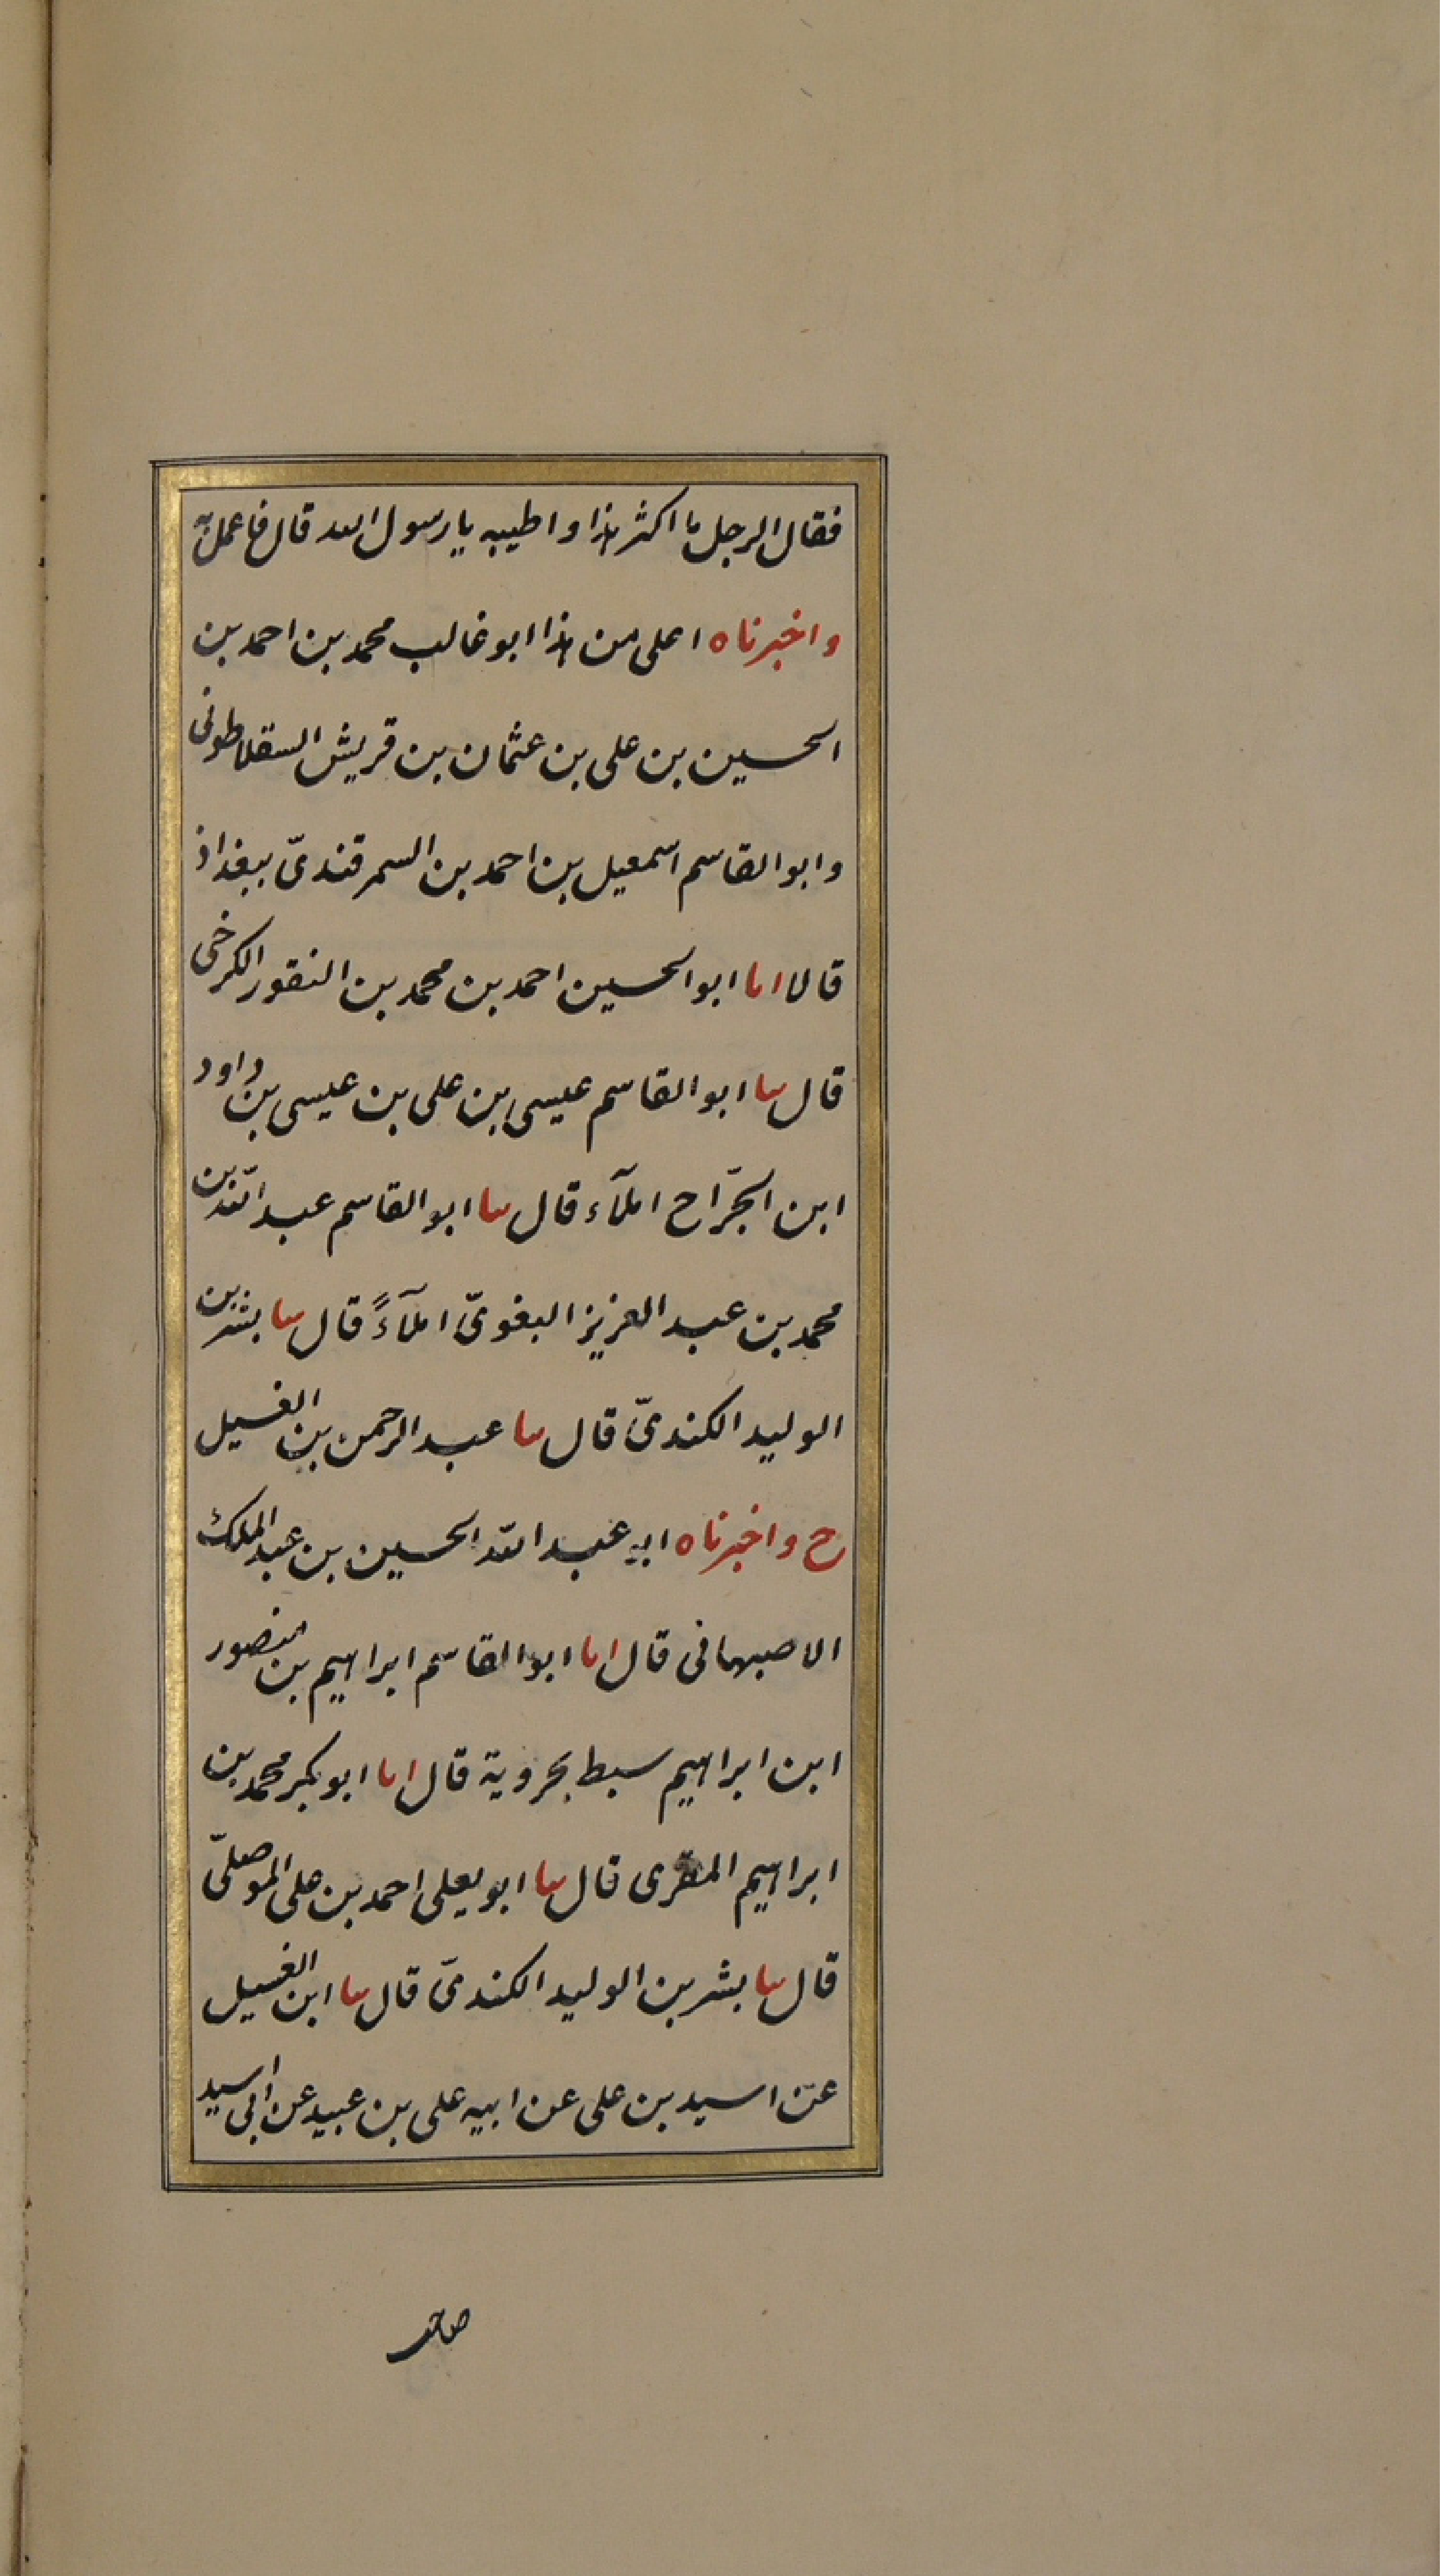 فقال الرجل ما اكثر هذا واطيبه يا رسول الله قال فاعمل به
واخبرناه اعلى من هذا ابو غالب محمد بن احمد بن
الحسين بن على بن عثمان بن قريش السقلاطونى
وابو القاسم اسمعيل بن احمد بن السمرقندىّ ببغداذ
قالا انا ابو الحسين احمد بن محمد بن النقور الكرخى
قال ثنا ابو القاسم عيسى بن على بن عيسى بن داود
ابن الجرّاح املآء قال ثنا ابو القاسم عبد الله بن
محمد بن عبد العزيز البغوىّ املآءً قال ثنا بشر بن
الوليد الكندىّ قال ثنا عبد الرحمن بن الغسيل
ح واخبرناه ابو عبد الله الحسين بن عبد الملك
الاصبهانى قال انا ابو القاسم ابراهيم بن منصور
ابن ابراهيم سبط بحروية قال انا ابو بكر محمد بن
ابراهيم المقرى قال ثنا ابو يعلى احمد بن على الموصلىّ
قال ثنا بشر بن الوليد الكندىّ قال ثنا ابن الغسيل
عن اسيد بن على عن ابيه على بن عبيد عن ابى اسيد